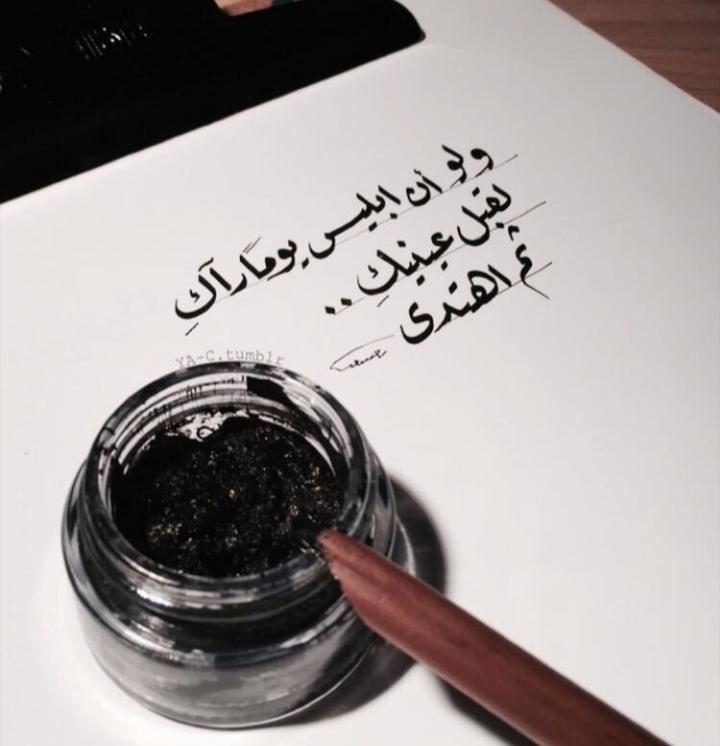 ولو أن ابليس يوماً رآكِ
لقبّل عينيكِ ..
ثم اهتدى
YA-C.tumblr